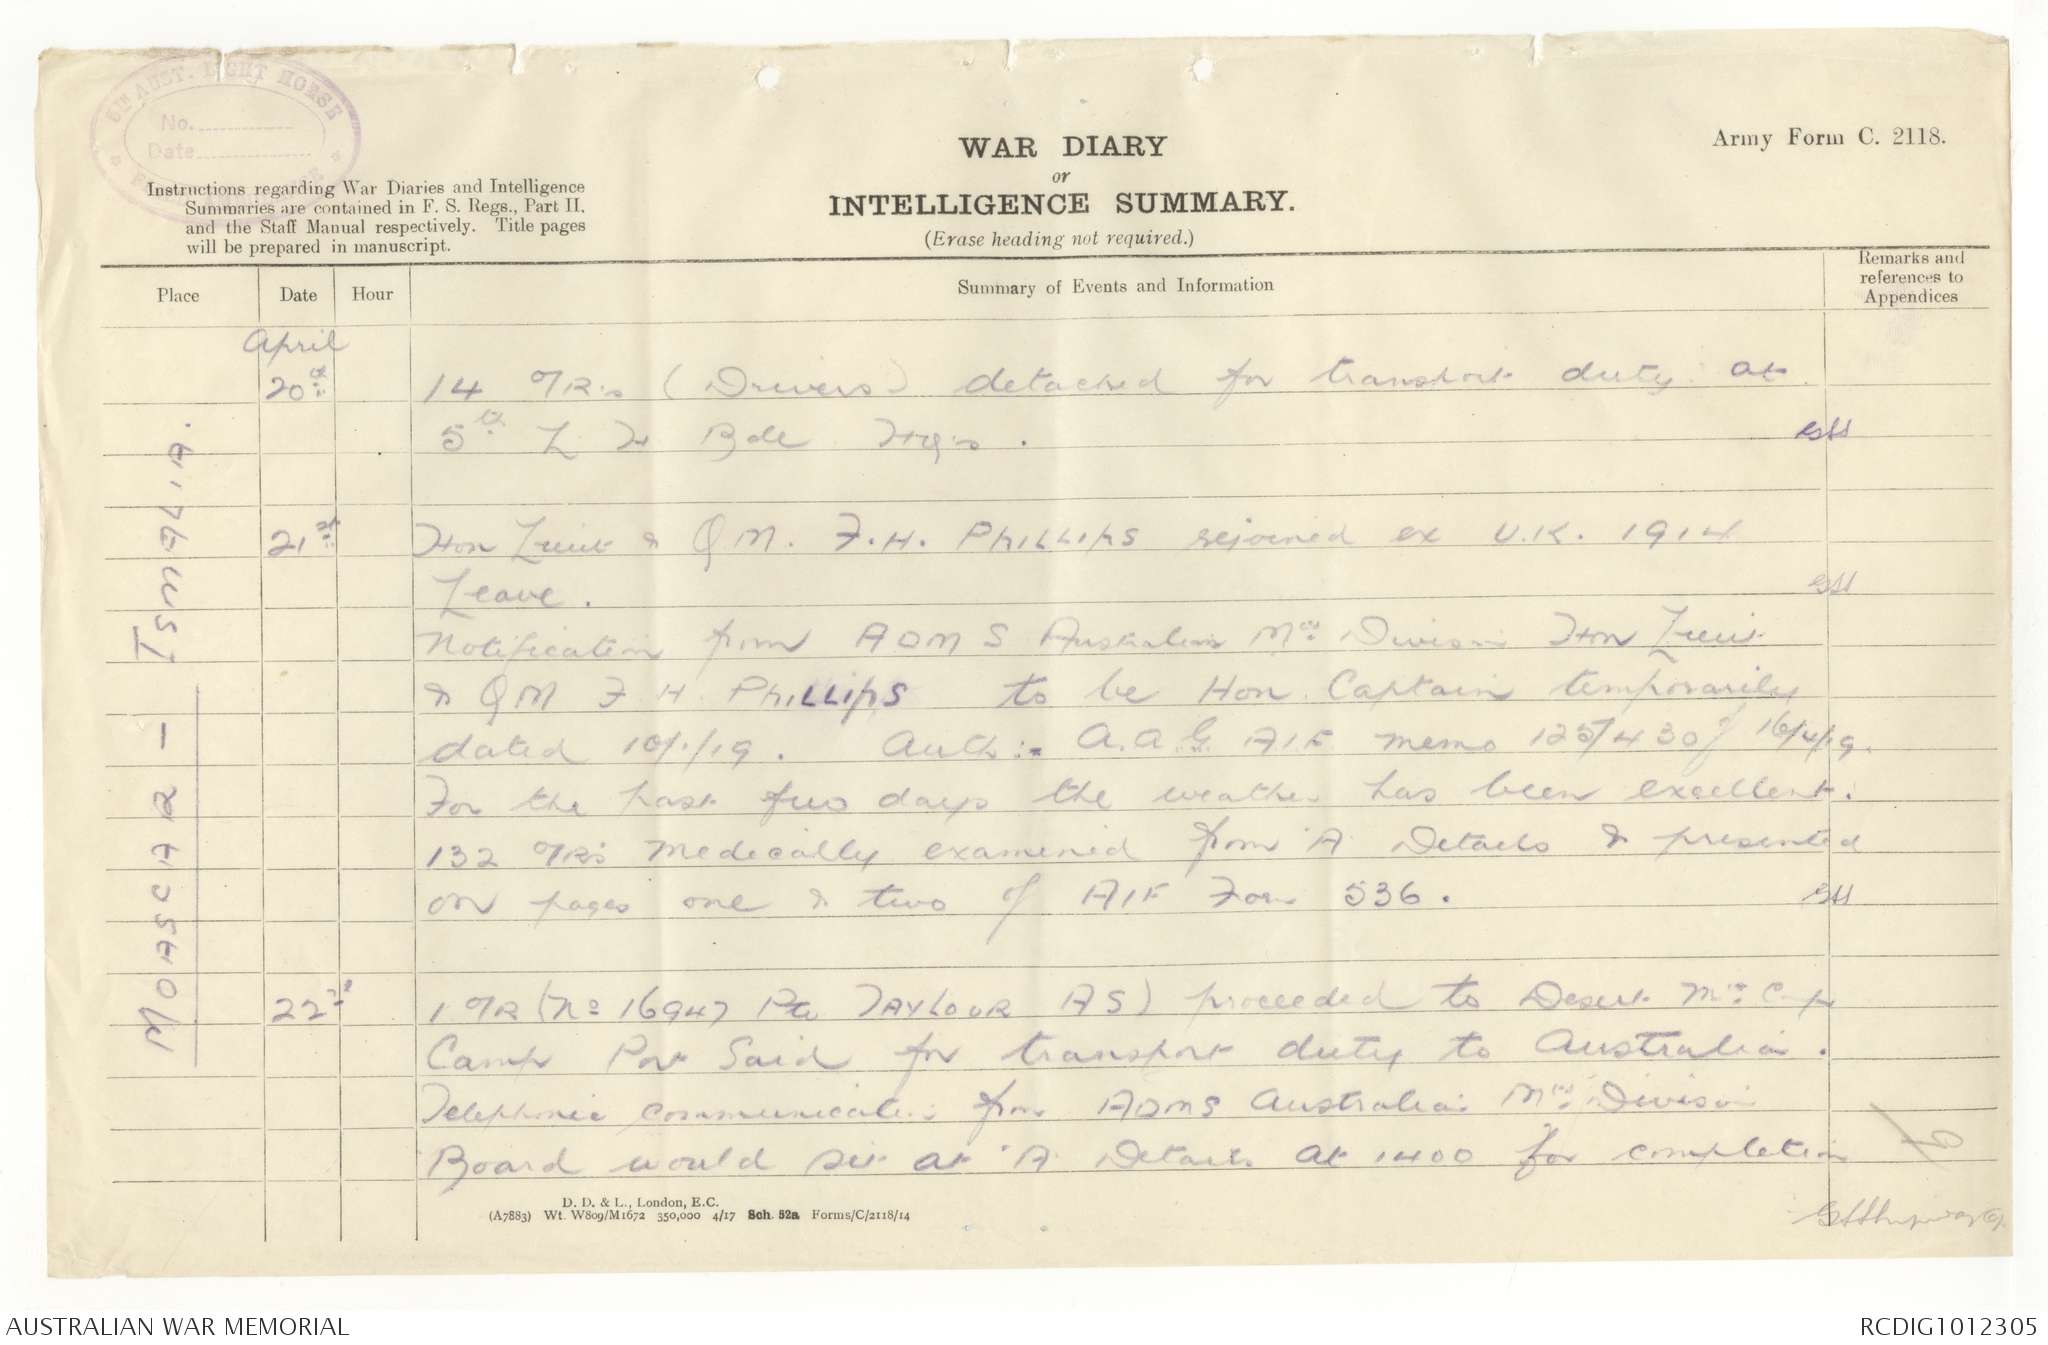 5TH AUST. LIGHT HORSE
No.
Date
Army Form C. 2118.
WAR DIARY
or
INTELLIGENCE SUMMARY.
(Erase heading not required.)
Instructions regarding War Diaries and Intelligence
Summaries are contained in F. S. Regs., Part II.
and the Staff Manual respectively. Title pages
will be prepared in manuscript.
Place
Date
Hour
Summary of Events and Information
Remarks and
references to
Appendices
MOASCAR - ISMAILIA.
April
20th
14 O/R's (Drivers) detached for transport duty at
5th L H Bde Hqrs.
21st
Hon Lieut & QM. F.H. PHILLIPS rejoined ex U.K. 1914
Leave.
Notification from ADMS Australian Mtd Division Hon Lieut
& QM F H. PHILLIPS to be Hon. Captain temporarily
dated 10/1/19. Auth:- A.A.G. AIF memo 125/430 of 16/4/19.
For the past two days the weather has been excellent.
132 O/R's Medically examined from A Details & presented
on pages one & two of AIF Form 536.
22nd
1 O/R (No 16947 Pte TAYLOUR AS) proceeded to Desert Mtd Corps
Camp Port Said for transport duty to Australia.
Telephonic communication from ADMS Australian Mtd Division
Board would sit at A Details at 1400 for completion
D. D. & L., London, E.C.
(A7883) Wt. W809/M1672 350,000 4/17 Sch. 52a Forms/C/2118/14
AUSTRALIAN WAR MEMORIAL
RCDIG1012305